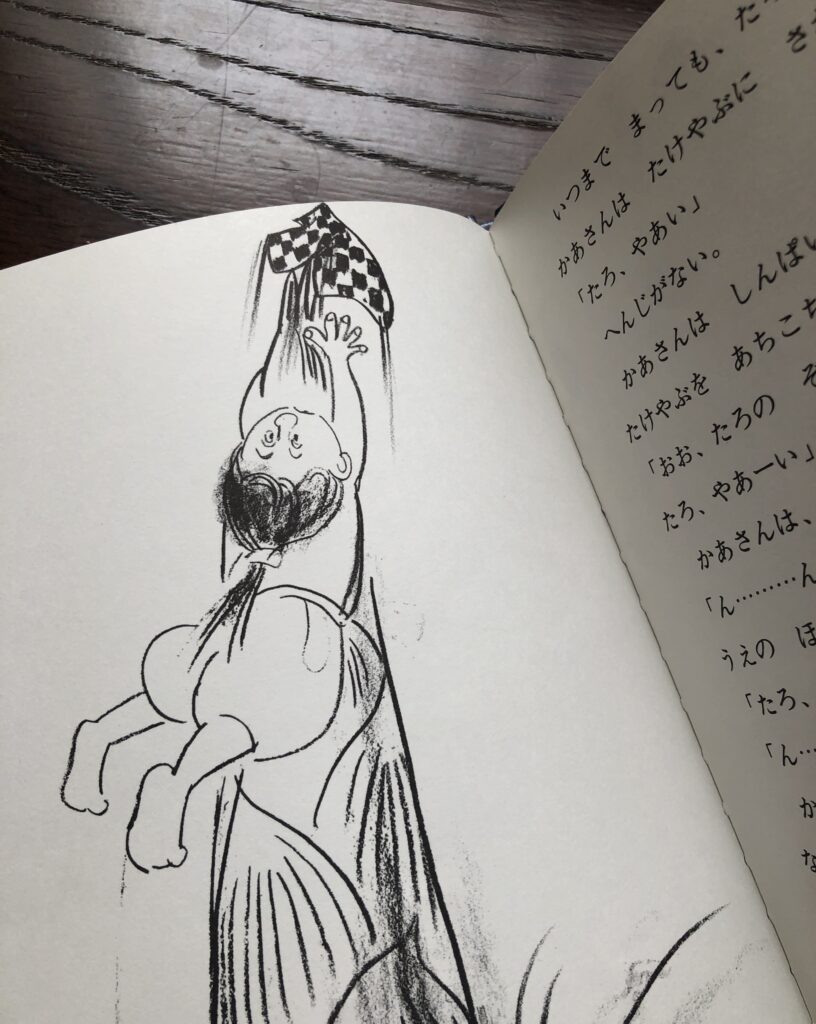 いつまで まっても、
かあさんは たけやぶに
「たろ、やあい」
へんじがない。
かあさんは しんぱい
たけやぶを あちこち
「おお、たろの そ
たろ、やあーい」
かあさんは、
「ん………ん
うえの ほ
「たろ、
「ん…
か
な